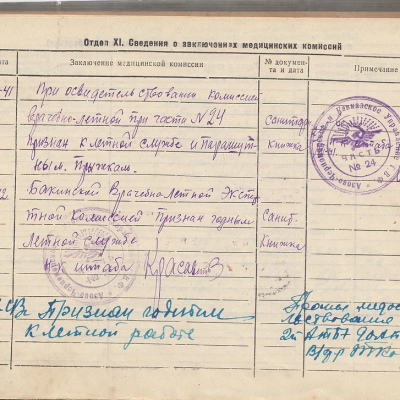 Отдел XI. Сведения о заключениях медицинских комиссий
ата
Заключение медицинской комиссии
№ докумен-
та и дата
Примечание
41
При освидетельствовании комиссией
врачебно-летной при части №24
Признан к летной службе и парашут-
ным. Прыжкам.
Санитарн
Книжка
Бакинской Врачебно Летной Экспер
тной комиссией признан годным к
Летной службе
Санит.
Книжка
Нч штаба Красавцев
Признан годным
к летной работе
Прошел медос
льствование
ЧАСТЬ
№ 24